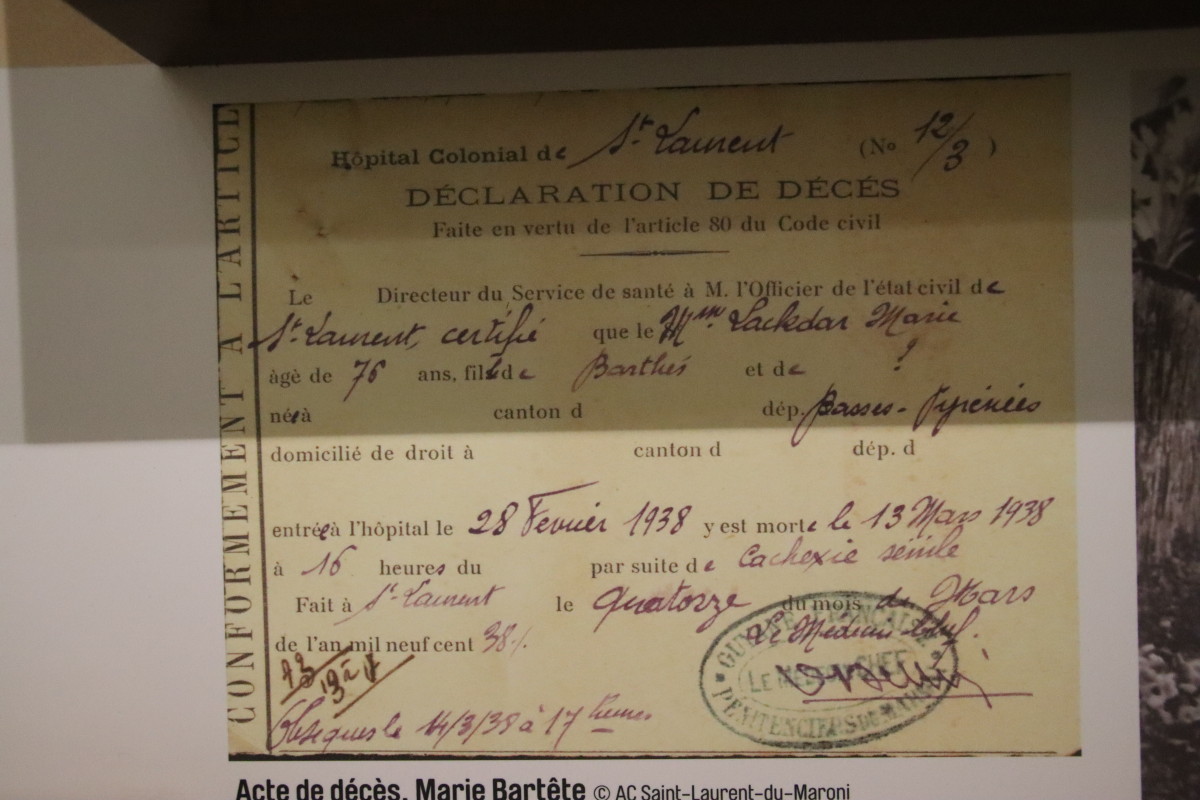 CONFORMEMENT A L'ARTICLE
Hôpital Colonial de St Laurent (No 12/3)
DÉCLARATION DE DÉCÉS
Faite en vertu de l'article 80 du Code civil
Le Directeur du Service de santé à M. l'Officier de l'état civil de
St Laurent, certifie que le Mme Lackdar Marie
âgé de 76 ans, fils de Barthés et de ?
née à canton d dép. Basses-Pyrénées
domicilié de droit à canton d dép. d
entrée à l'hôpital le 28 Fevrier 1938 y est morte le 13 Mars 1938
à 16 heures du par suite de Cachexie sénile
Fait à St Laurent le Quatorze du mois de Mars
de l'an mil neuf cent 38
Le Medecin Chef.
GUYANE FRANÇAISE
LE MÉDECIN CHEF
PÉNITENCIERS DU MARONI
Obseques le 14/3/38 à 17 heures
Acte de décès, Marie Bartête © AC Saint-Laurent-du-Maroni